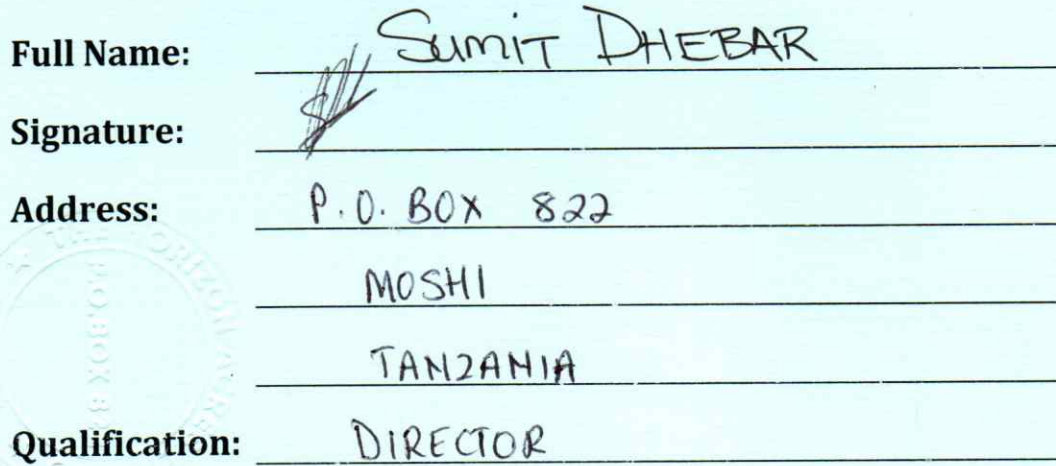 Full Name: SUMIT DHEBAR
Signature:
Address: P.O. BOX 822
MOSHI
TANZANIA
Qualification: DIRECTOR
THE HORIZON
P.O.BOX 8